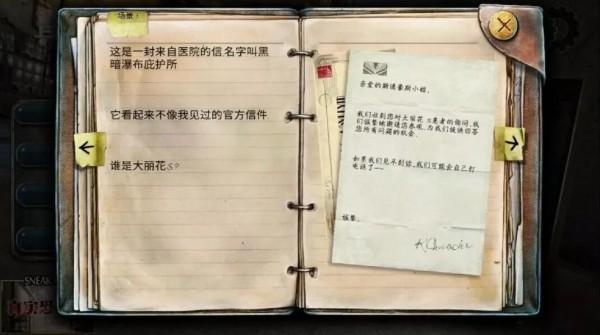 场景:
这是一封来自医院的信名字叫黑
暗瀑布庇护所
它看起来不像我见过的官方信件
谁是大丽花S?
亲爱的斯通豪斯小姐,
我们收到您对大丽花 S患者的询问,我
们诚挚地邀请您参观,为我们提供回答
您所有问题的机会.
如果我们见不到你,我们可能会自己打
电话了——
诚挚,
SNEAK